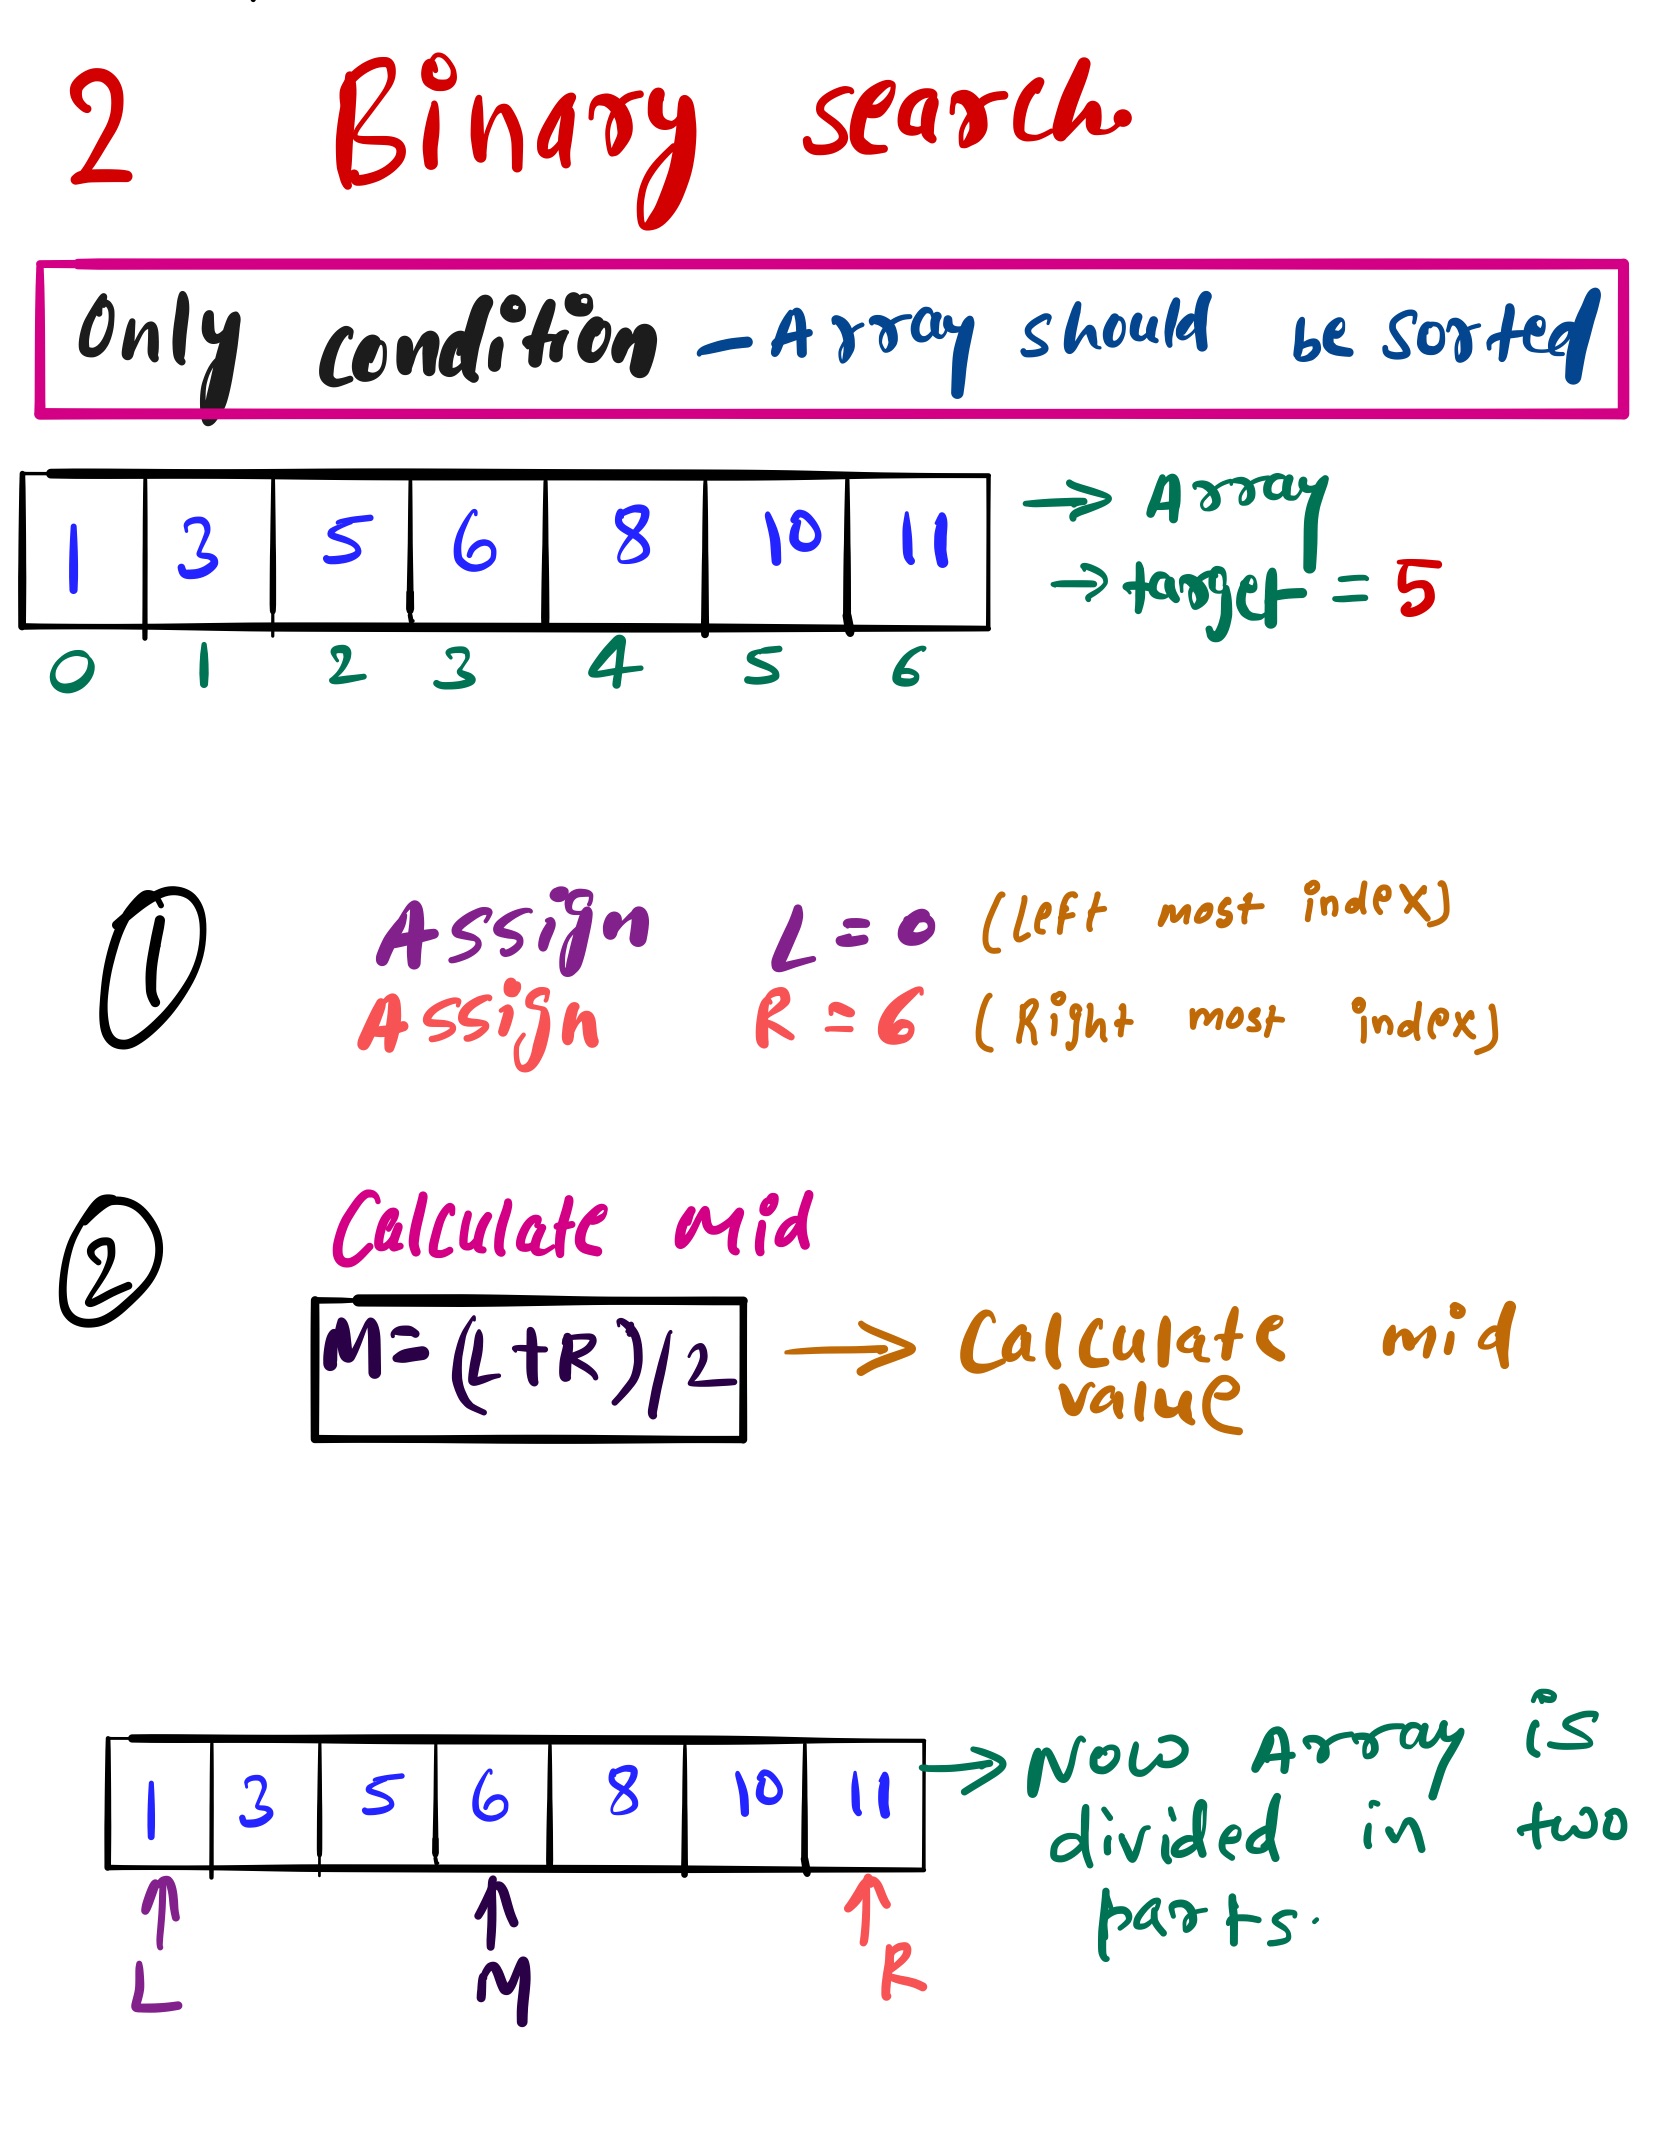 2 Binary search.
Only condition - Array should be sorted
1 3 5 6 8 10 11 → Array
→ target = 5
0 1 2 3 4 5 6
1 Assign L = 0 (Left most index)
Assign R = 6 (Right most index)
2 Calculate mid
M = (L+R)/2 → Calculate mid
value
1 3 5 6 8 10 11 → Now Array is
divided in two
parts.
L M R